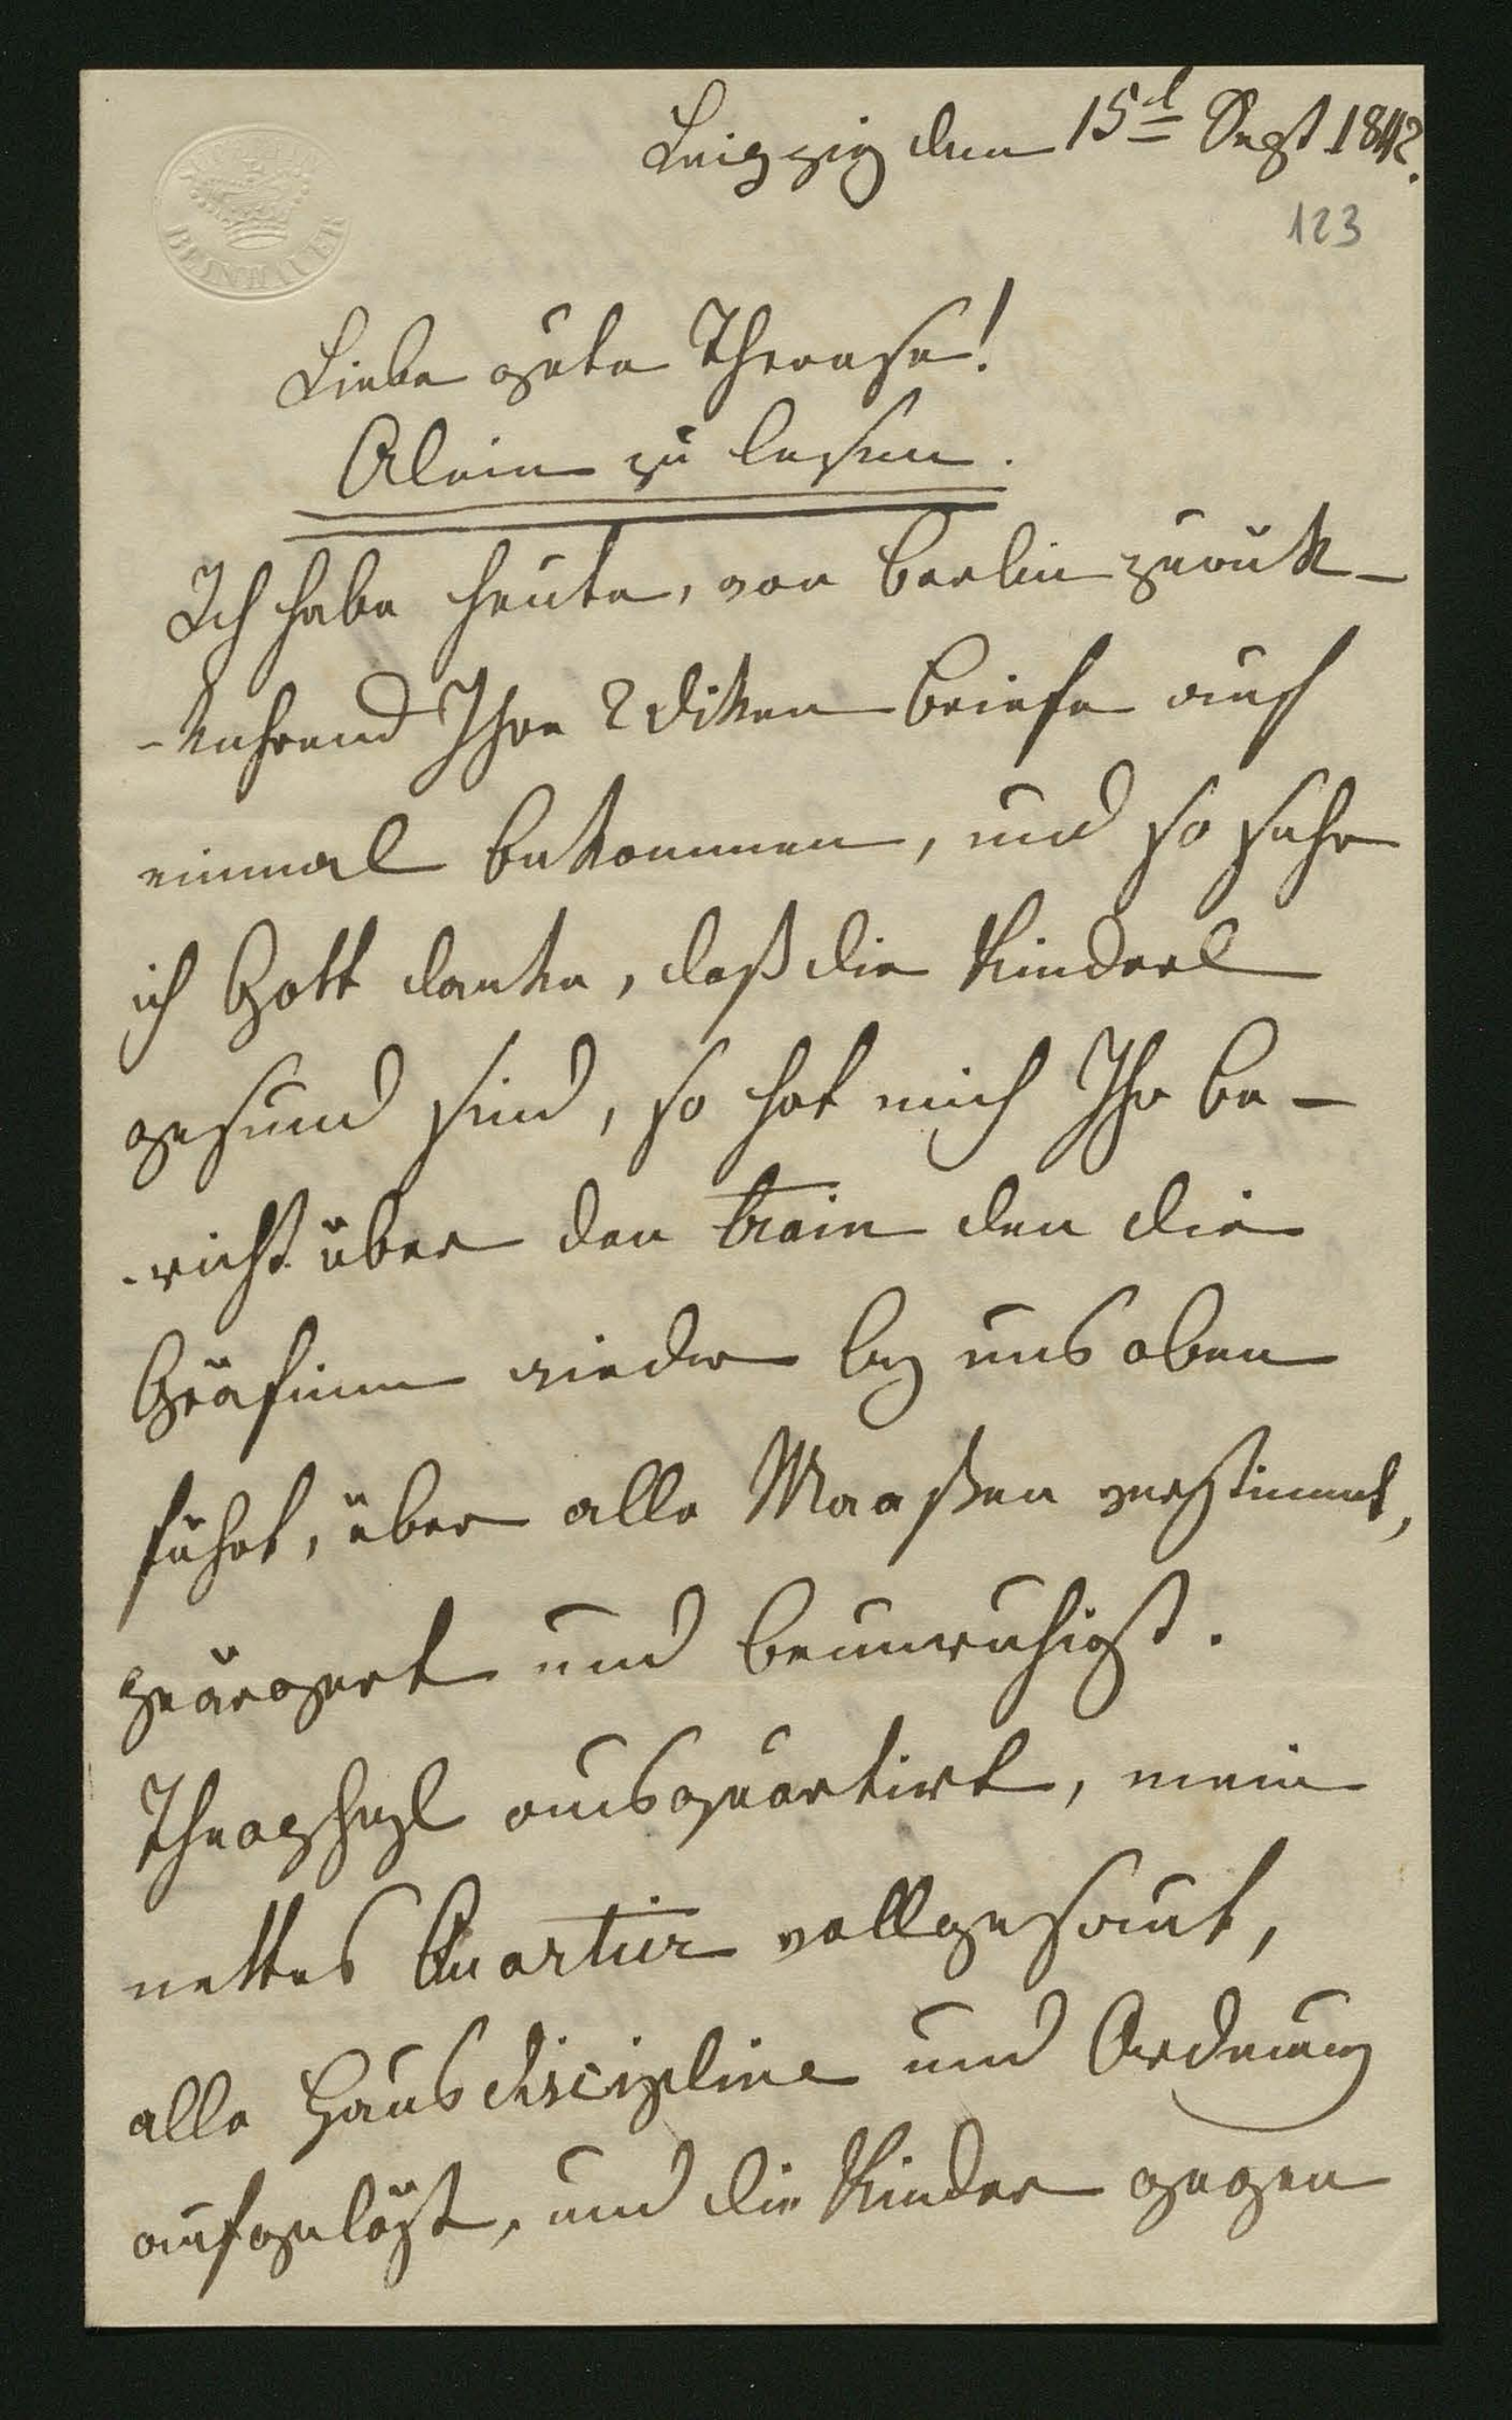 Leipzig den 15t Sept 1842.
123
BEINHAUER
Liebe gute Therese!
Alein zu lesen.
Ich habe heute, von Berlin zurük-
-kehrend Ihre 2 diken Briefe auf
einmal bekommen, und so sehr
ich Gott danke, daß die Kinderl
gesund sind, so hat mich Ihr Be-
-richt über den train den die
Gräfinn wieder bey uns oben
führt, über alle Maaßen verstimmt,
geärgert und beunruhigt.
Theophyl ausquartirt, mein
nettes Quartier vollgesaut,
alle Hausdiscipline und Ordnung
aufgelößt, und die Kinder gegen